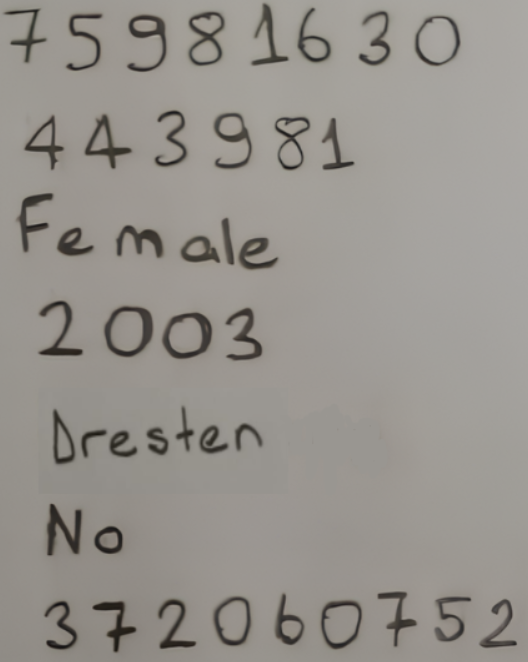 75981630
443981
Female
2003
Dresten
No
372060752